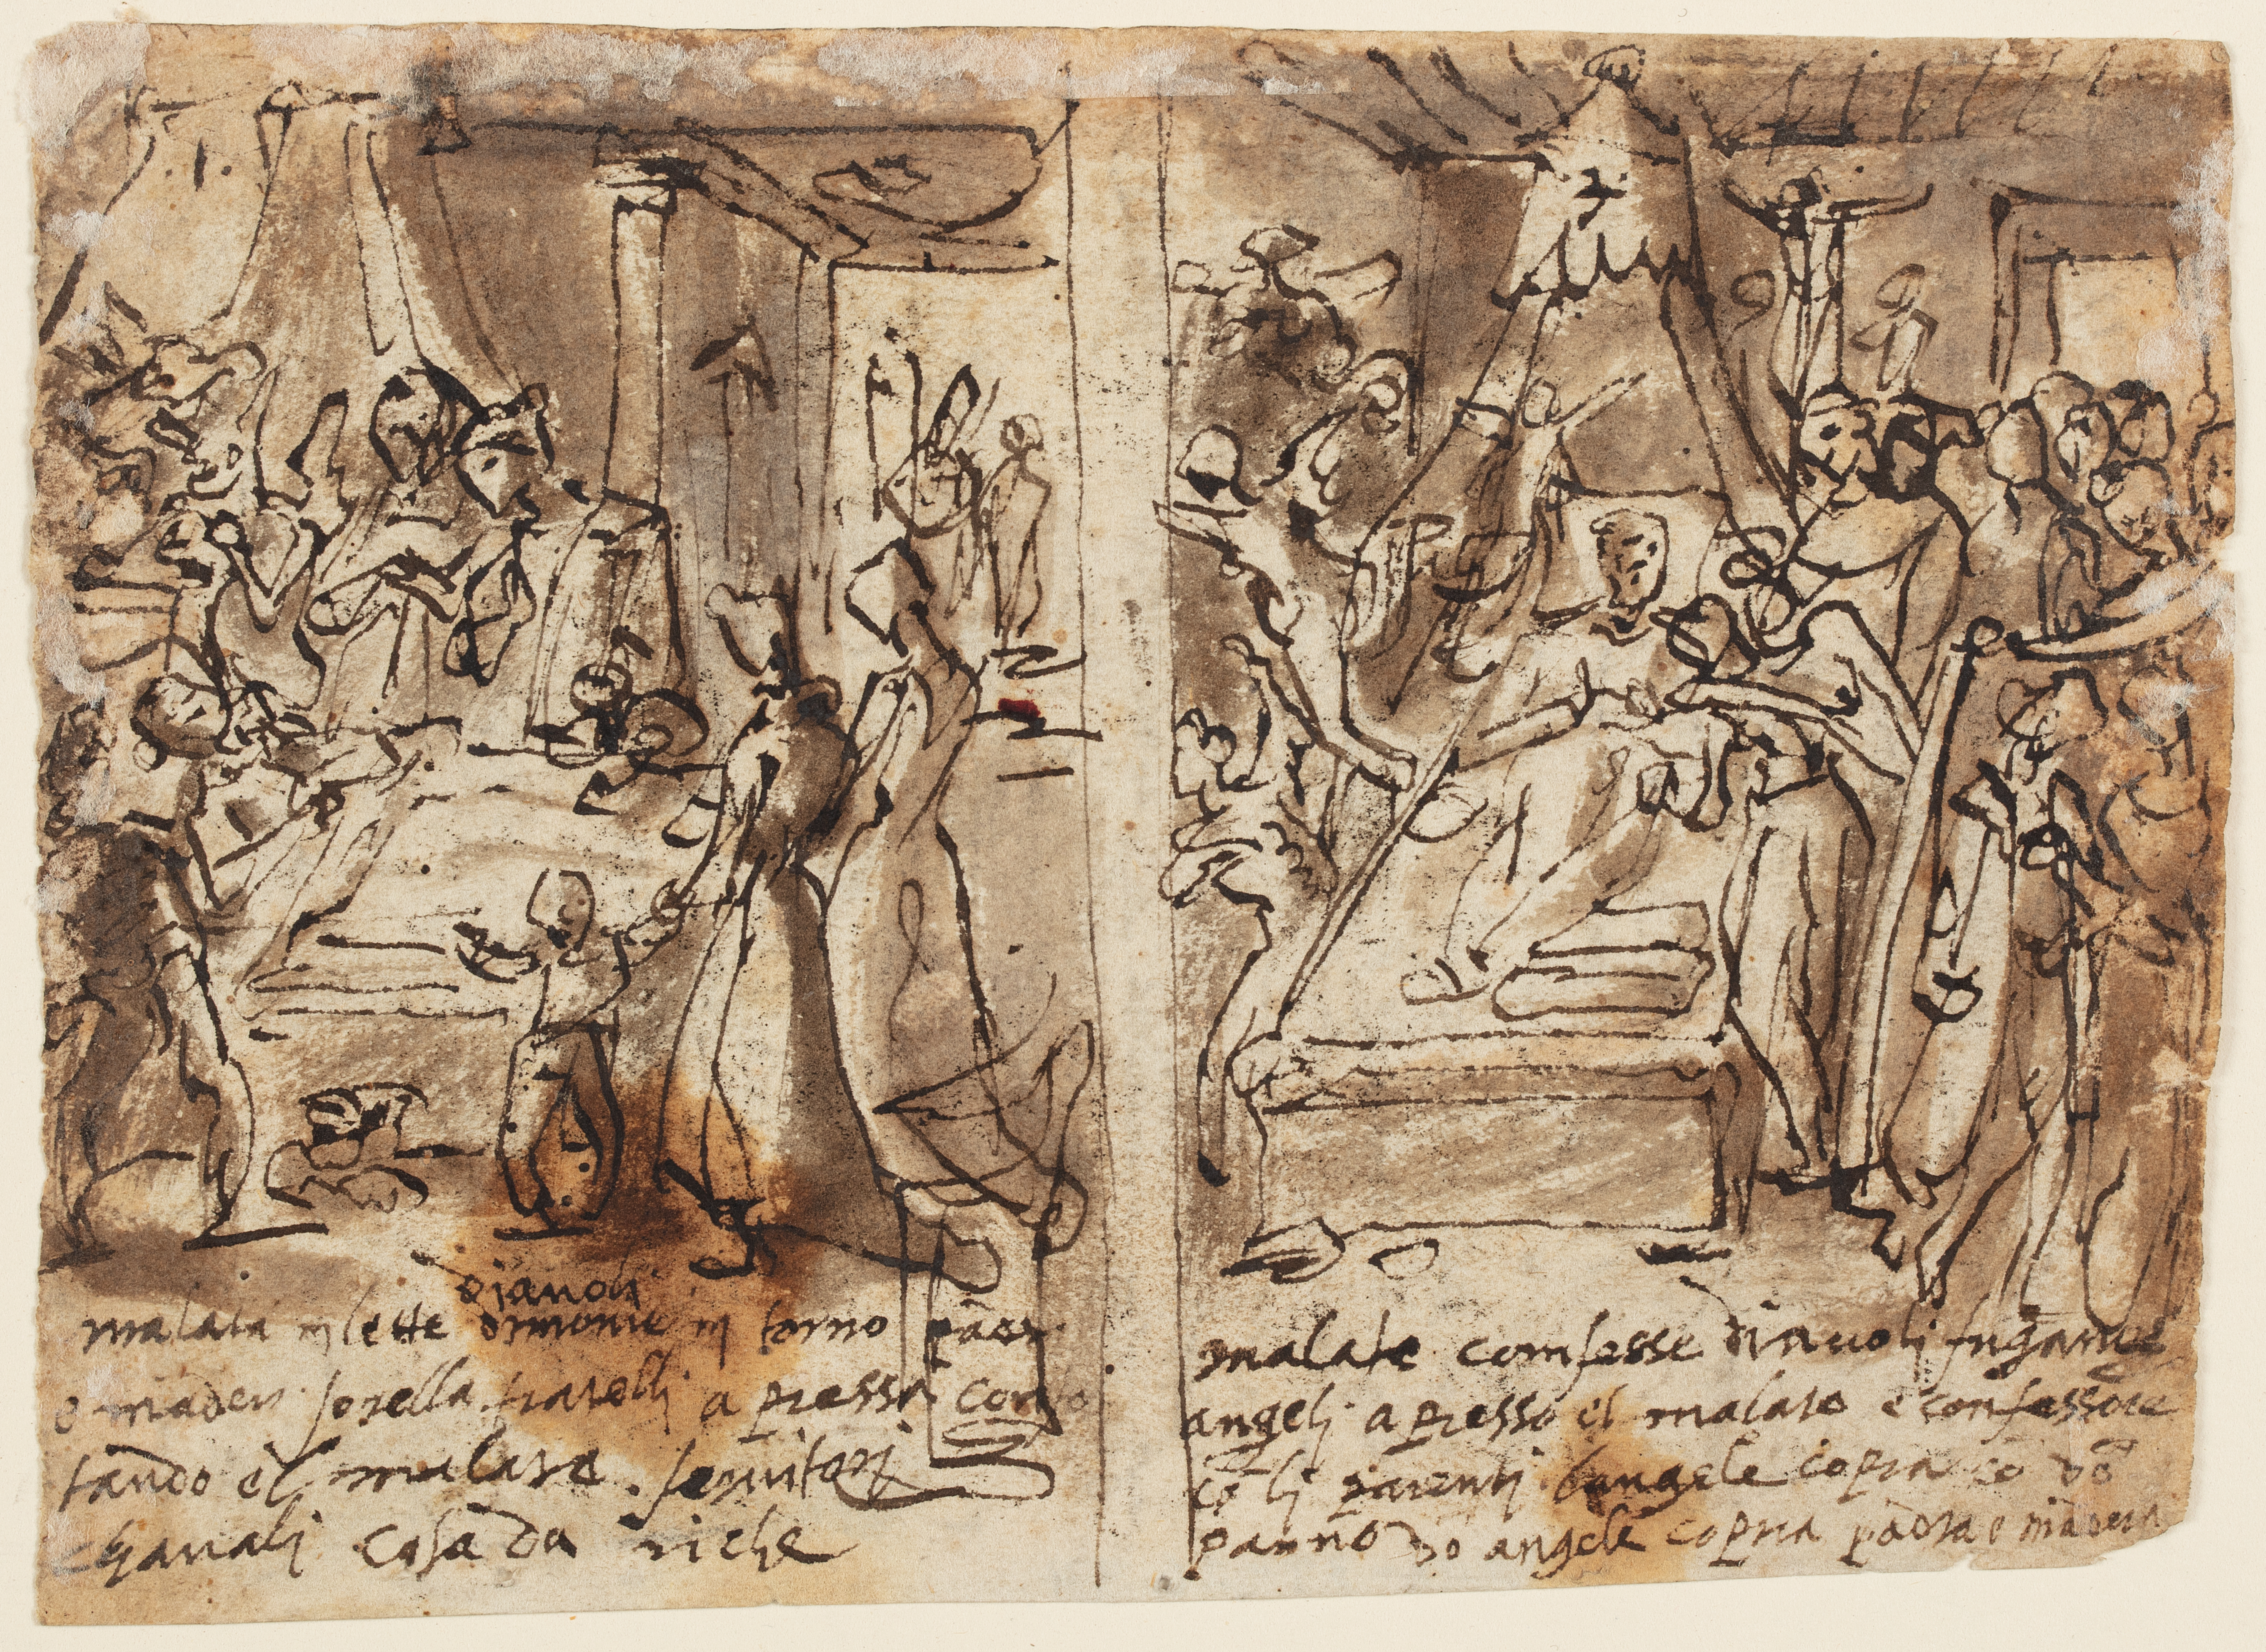 dianoli
malata in lette dimonie in torno padr
e maders sorella fratelli a presso confo
tando el malato. servitori
chavali cosa da riche
malato comfesse diavoli fugano e
angeli a presso el malato e confessore
cō li parenti langele copra cō dō
panno do angele copria padra e madera